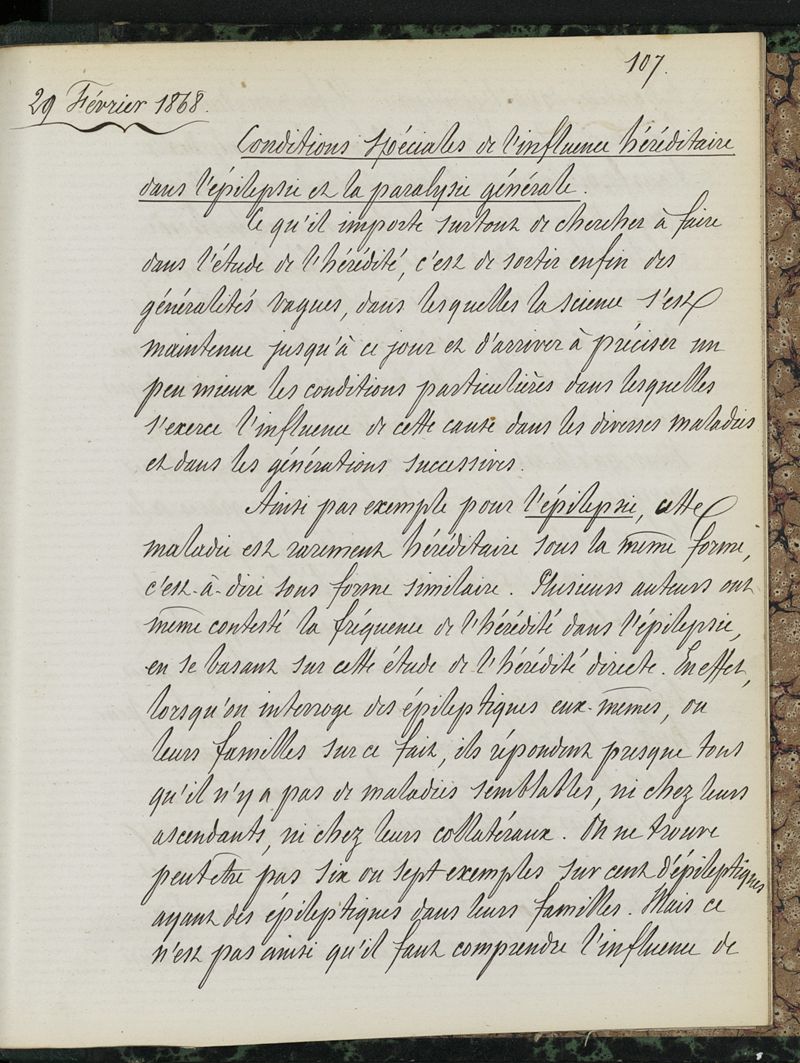 107.
29 Février 1868.
Conditions spéciales de l'influence héréditaire
dans l'épilepsie et la paralysie générale.
Ce qu'il importe surtout de chercher à faire
dans l'étude de l'hérédité, c'est de sortir enfin des
généralités vagues, dans lesquelles la science s'est
maintenue jusqu'à ce jour et d'arriver à préciser un
peu mieux les conditions particulières dans lesquelles
s'exerce l'influence de cette cause dans les diverses maladies
et dans les générations successives.
Ainsi par exemple pour l'épilepsie, cette
maladie est rarement héréditaire sous la même forme,
c'est-à-dire sous forme similaire. Plusieurs auteurs ont
même contesté la fréquence de l'hérédité dans l'épilepsie,
en se basant sur cette étude de l'hérédité directe. En effet,
lorsqu'on interroge des épileptiques eux-mêmes, ou
leurs familles sur ce fait, ils répondent presque tous
qu'il n'y a pas de maladies semblables, ni chez leurs
ascendants, ni chez leurs collatéraux. On ne trouve
peut être pas six ou sept exemples sur cent d'épileptiques
ayant des épileptiques dans leurs familles. Mais ce
n'est pas ainsi qu'il faut comprendre l'influence de